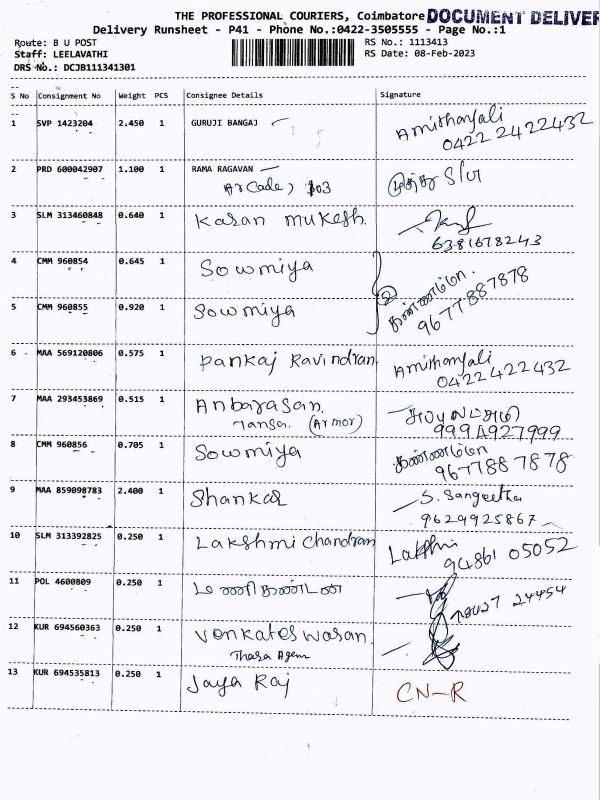 THE PROFESSIONAL COURIERS, Coimbatore DOCUMENT DELIVER
Delivery Runsheet - P41 - Phone No.:0422-3505555 - Page No.:1
Route: B U POST
RS No.: 1113413
Staff: LEELAVATHI
RS Date: 08-Feb-2023
DRS No.: DCJB111341301
S No Consignment No Weight PCS Consignee Details Signature
1 SVP 1423204 2.450 1 GURUJI BANGAJ Amithanjali
0422 2422432
2 PRD 600042907 1.100 1 RAMA RAGAVAN முத்து S/o
Arcade, 103
3 SLM 313460848 0.640 1 Karan mukesh
6381678243
4 CMM 960854 0.645 1 Sowmiya
2 கண்ணம்மா
5 CMM 960855 0.920 1 Sowmiya 9677887878
6 MAA 569120806 0.575 1 Pankaj Ravindran Amithanjali
0422422432
7 MAA 293453869 0.515 1 Anbarasan
(Armor) 9994927999
8 CMM 960856 0.705 1 Sowmiya கண்ணம்மா
9677887878
9 MAA 859098783 2.400 1 Shankar S. Sangeetha
9629925867
10 SLM 313392825 0.250 1 Lakshmi Chandram Lakshmi
94861 05052
11 POL 4600809 0.250 1 மணிகண்டன்
24454
12 KUR 694560363 0.250 1 Venkateswaran
Thara Agen
13 KUR 694535813 0.250 1 Jaya Raj CN-R